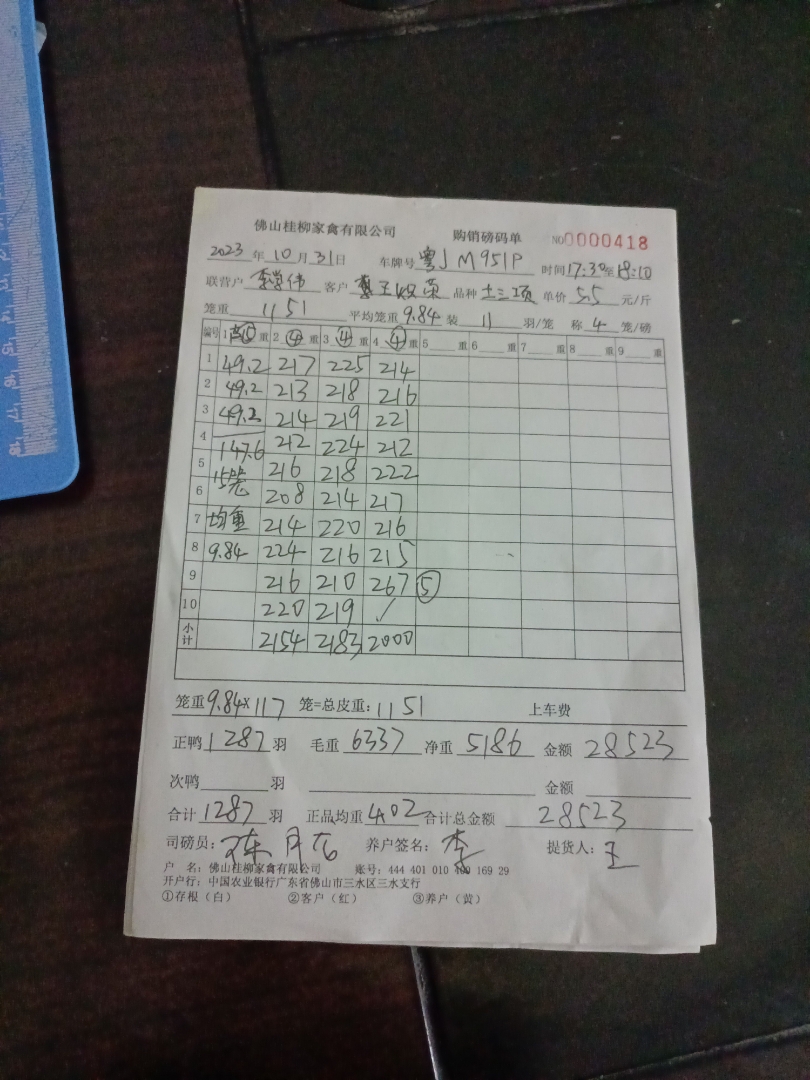 佛山桂柳家禽有限公司 购销磅码单 NO0000418
2023年10月31日 车牌号 粤J M951P 时间17:30至18:10
联营户 客户 品种 土三项 单价 5.5 元/斤
笼重 1151 平均笼重 9.84 装 11 羽/笼 称 4 笼/磅
编号 1 重 2 ④ 重 3 ④ 重 4 ④ 重 5 重 6 重 7 重 8 重 9 重
1 49.2 217 225 214
2 49.2 213 218 216
3 49.2 214 219 221
4 147.6 212 224 212
5 15笼 216 218 222
6 208 214 217
7 均重 214 220 216
8 9.84 224 216 215
9 216 210 267 ⑤
10 220 219 /
小计 2154 2183 2000
笼重 9.84×117 笼=总皮重: 1151 上车费
正鸭 1287 羽 毛重 6337 净重 5186 金额 28523
次鸭 羽 金额
合计 1287 羽 正品均重 4.02 合计总金额 28523
司磅员: 养户签名: 李 提货人: 王
户 名: 佛山桂柳家禽有限公司 账号: 444 401 010 169 29
开户行: 中国农业银行广东省佛山市三水区三水支行
①存根(白) ②客户(红) ③养户(黄)